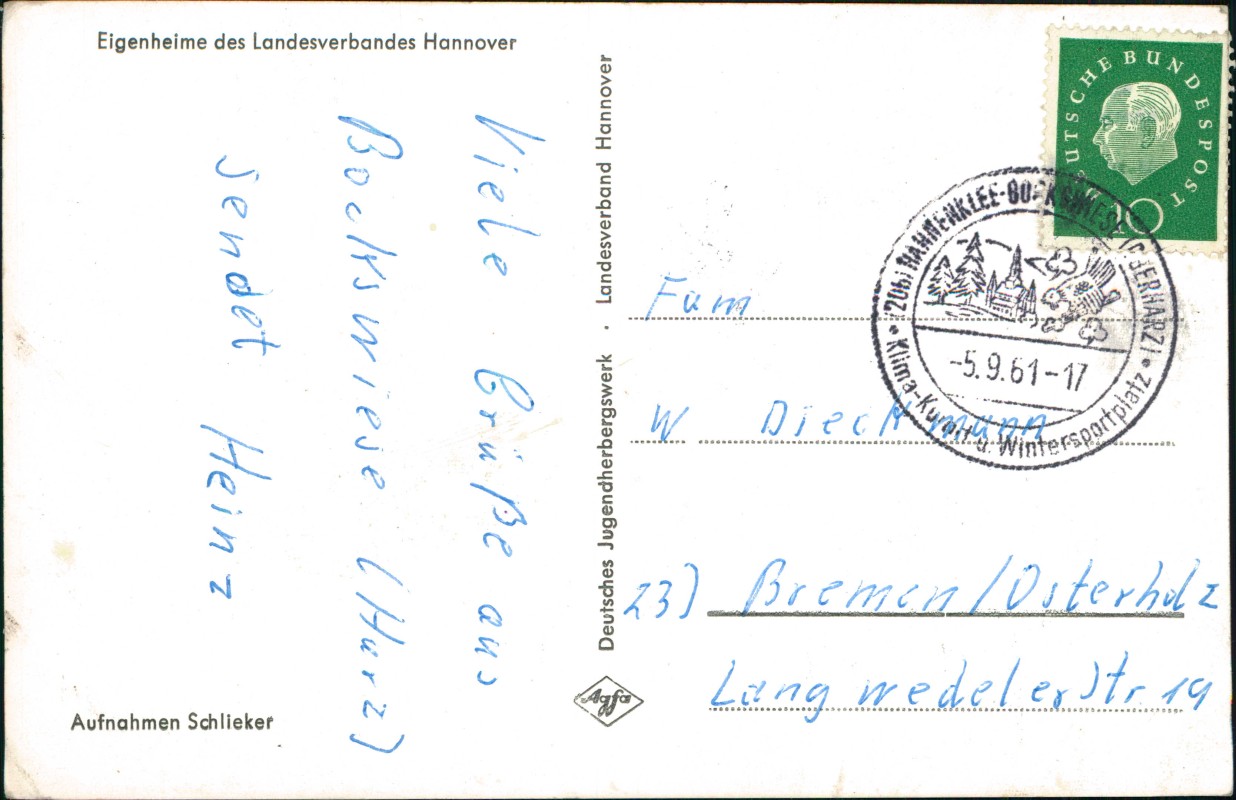 Eigenheime des Landesverbandes Hannover
Viele Grüße aus
Bockswiese (Harz)
sendet Heinz
Aufnahmen Schlieker
Deutsches Jugendherbergswerk · Landesverband Hannover
Agfa
DEUTSCHE BUNDESPOST
10
(20b) HAHNENKLEE-BOCKSWIESE (OBERHARZ)
-5.9.61-17
Klima-Kurort u. Wintersportplatz
Fam
W Dieckmann
23) Bremen/Osterholz
Langwedeler Str. 19